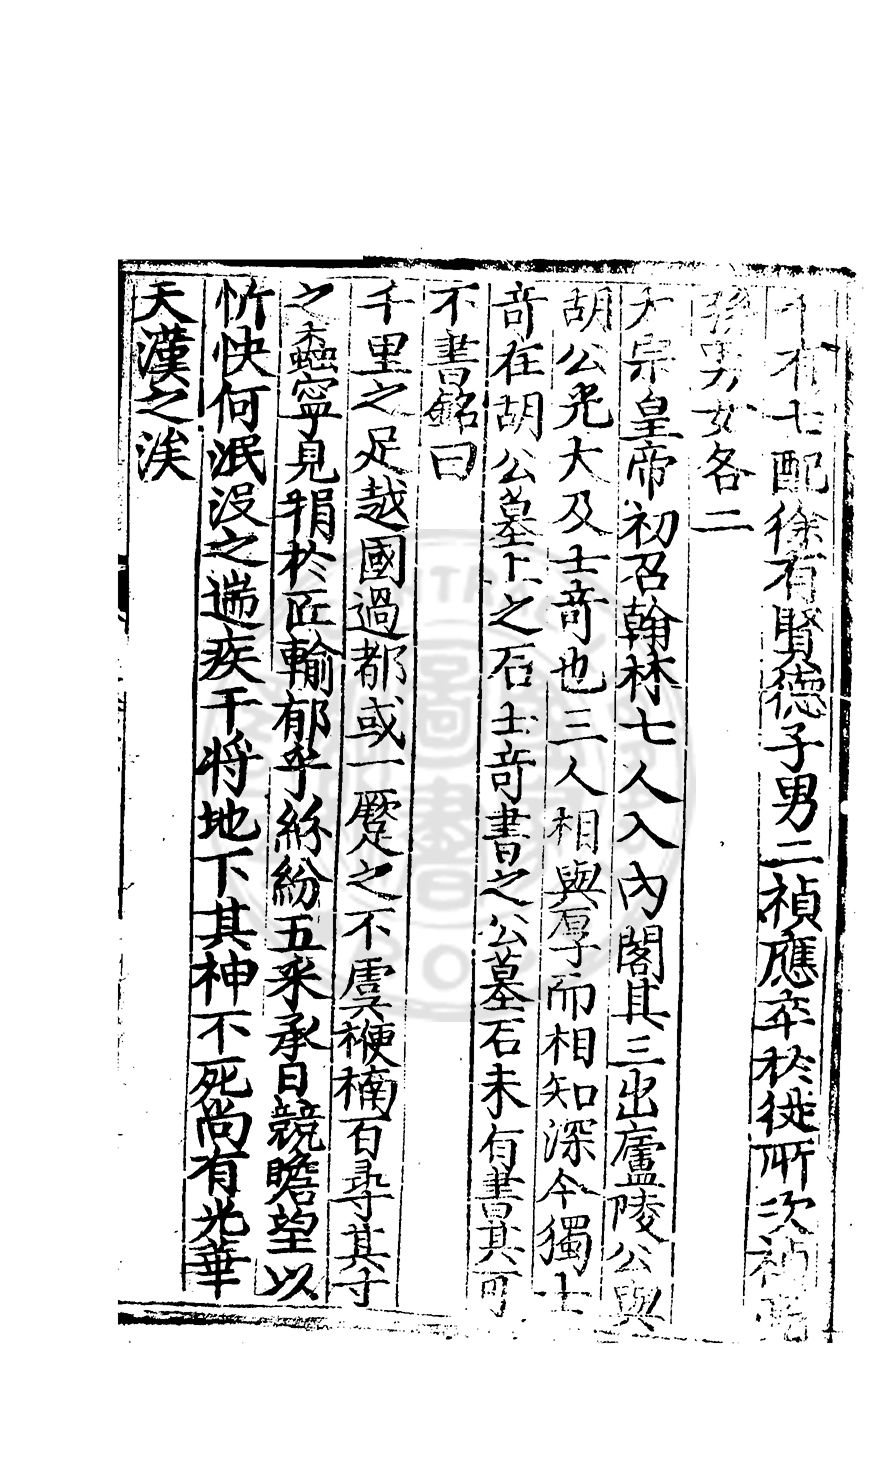 十有七配徐有賢德子男二禎應卒於徙所次禎
孫男女各二
太宗皇帝初召翰林七人入內閣其三出廬陵公與
胡公光大及士竒也三人相與厚而相知深今獨士
竒在胡公墓上之石士竒書之公墓石未有書其可
不書銘曰
千里之足越國過都或一蹷之不虞楩楠百尋其寸
之蠧寧見捐於匠輸郁乎絲紛五采承日競瞻望以
忻快何泯沒之遄疾干將地下其神不死尚有光華
天漢之涘